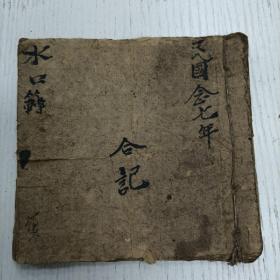 民國念七年
合記
水口簿